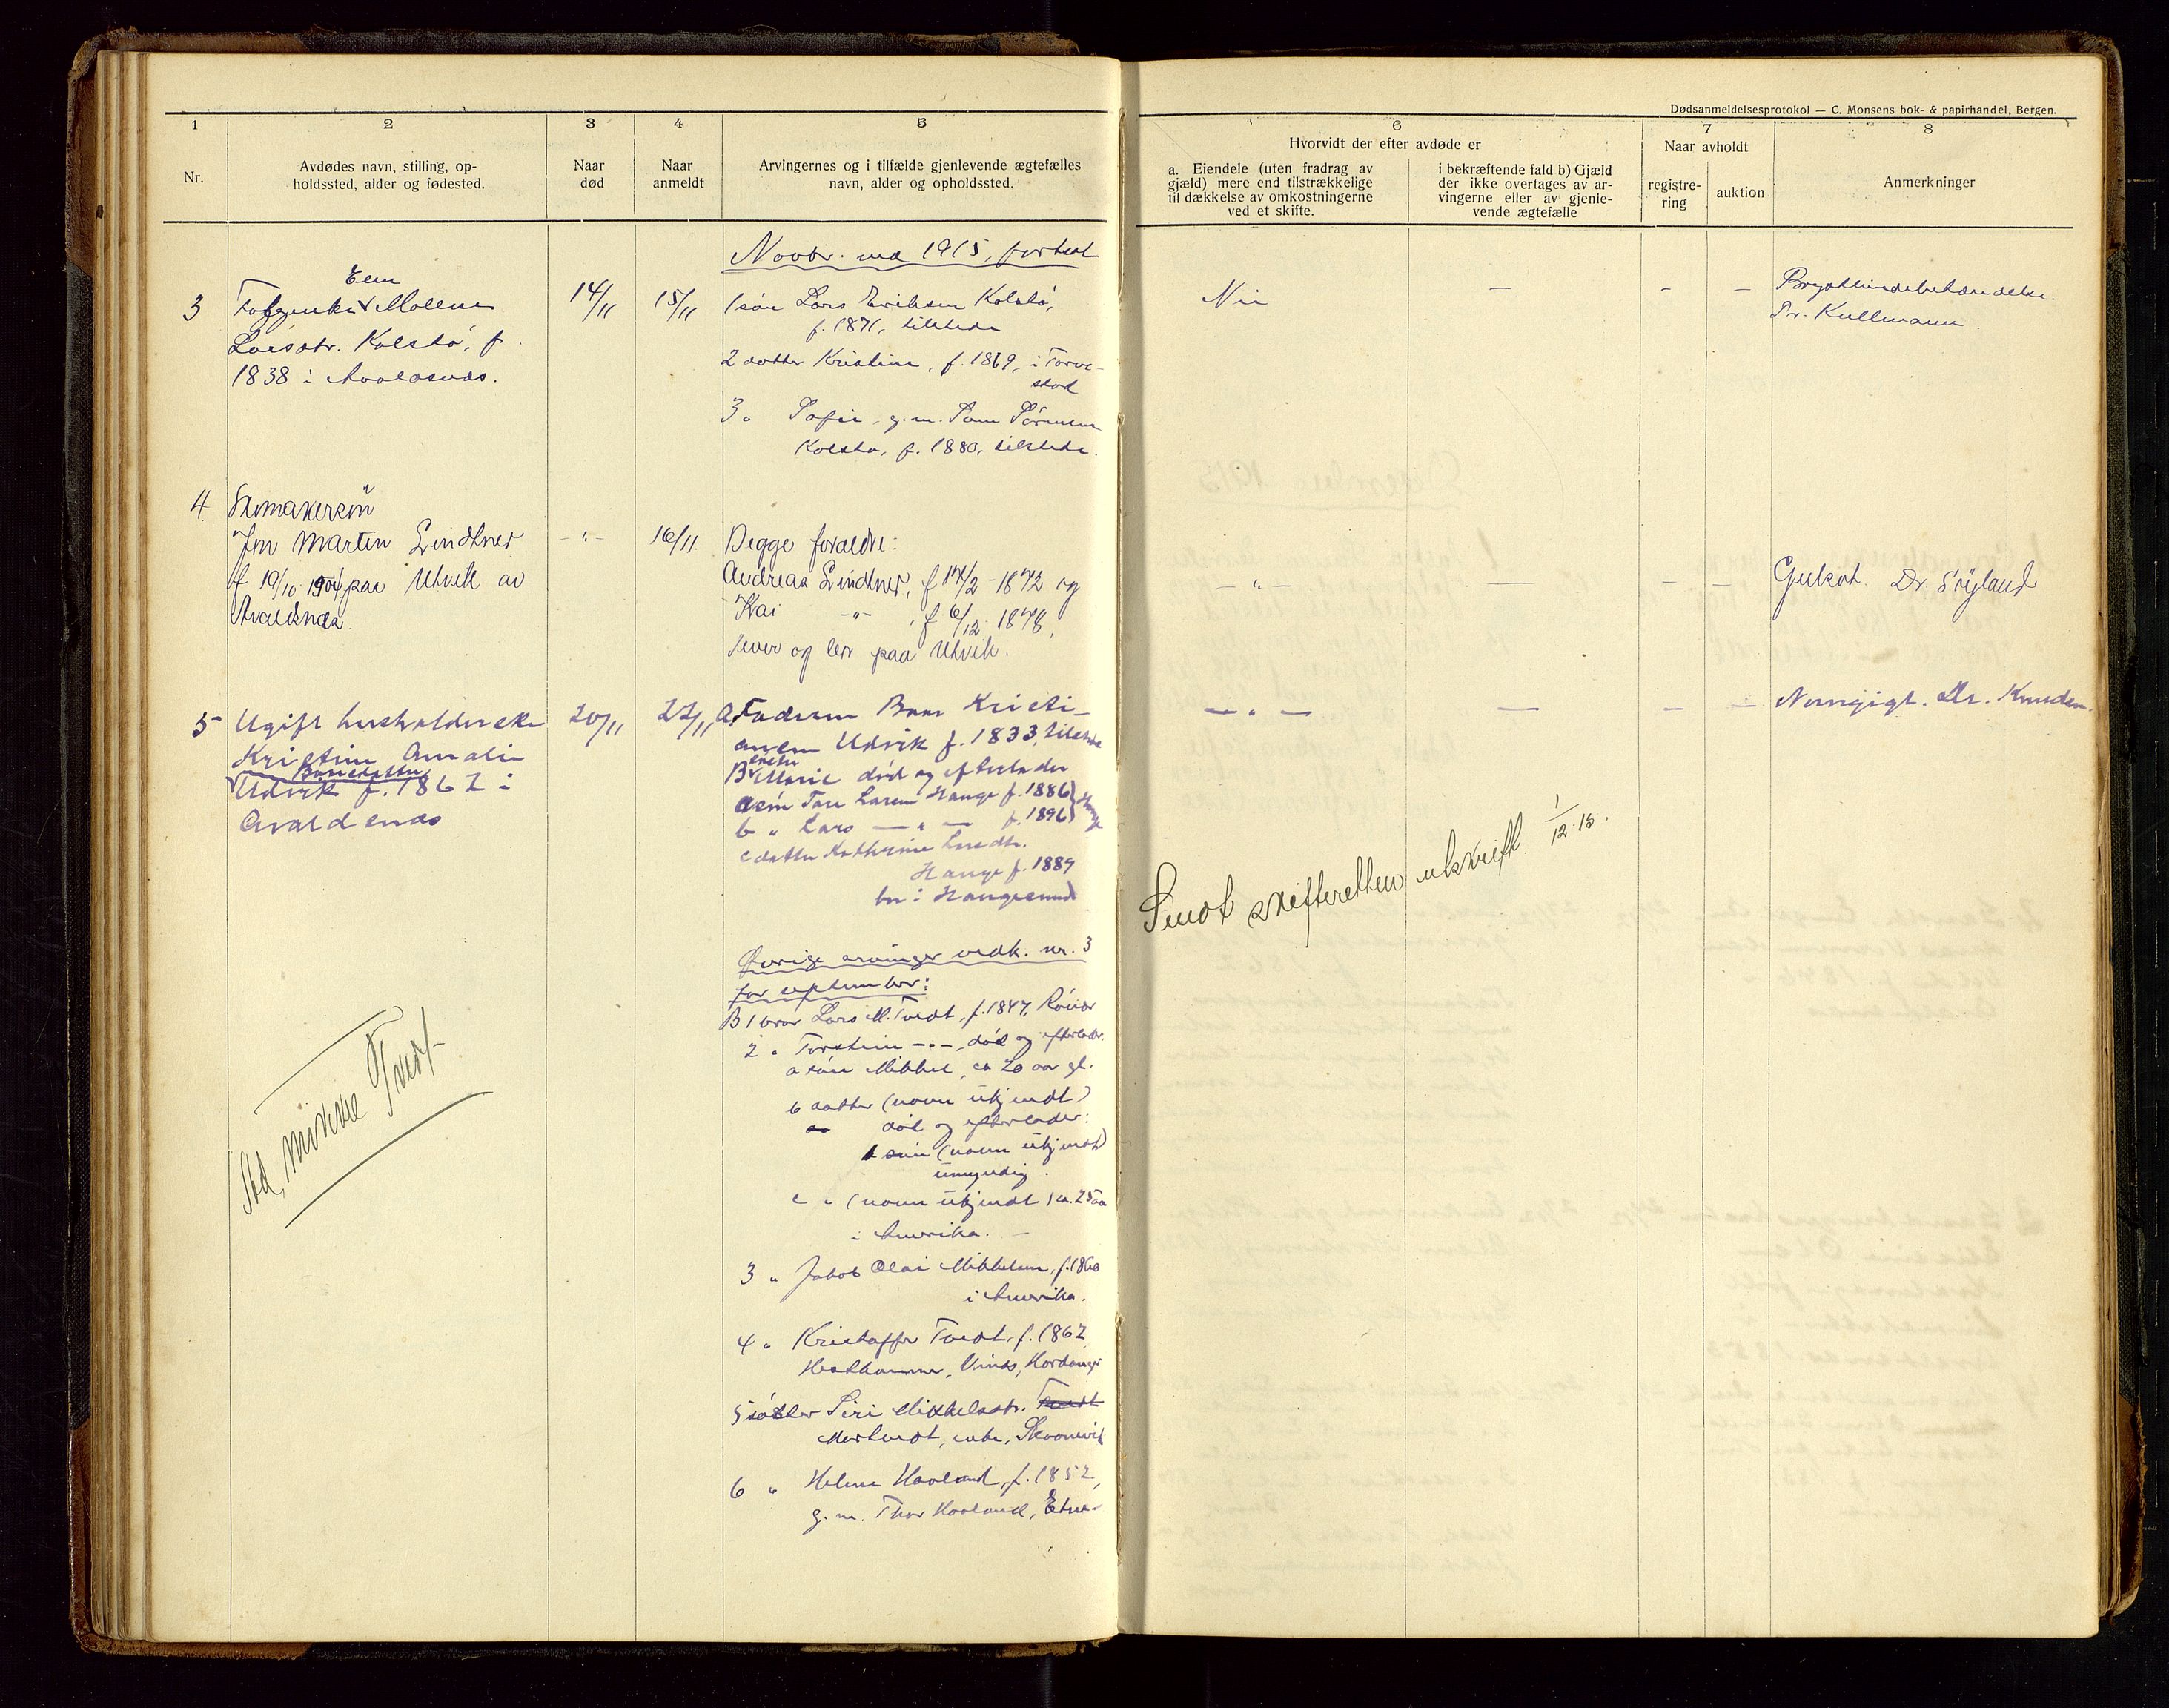 Dødsanmeldelsesprotokol — C. Monsens bok- & papirhandel, Bergen.
1
2
3
4
5
6
7
8
Nr.
Avdødes navn, stilling, op-
holdssted, alder og fødested.
Naar
død
Naar
anmeldt
Arvingernes og i tilfælde gjenlevende ægtefælles
navn, alder og opholdssted.
Hvorvidt der efter avdøde er
a. Eiendele (uten fradrag av
gjæld) mere end tilstrækkelige
til dækkelse av omkostningerne
ved et skifte.
i bekræftende fald b) Gjæld
der ikke overtages av ar-
vingerne eller av gjenle-
vende ægtefælle
Naar avholdt
registre-
ring
auktion
Anmerkninger
Novbr. md 1915, fortsat
3
Elen
Malene
Larsdtr. Kolstø, f.
1838 i Avaldsnes.
14/11
15/11
1 søn Lars Eriksen Kolstø,
f. 1871, tilstede
2 datter Kristine, f. 1869, i Torve-
stad
3 " Sofie, g.m. Tom
Kolstø, f. 1880, tilstede.
Nei
—
-
-
Dr. Kullmann.
4
Skomakersøn
Jon Martin Lindtner
f 19/10 1904 paa Utvik av
Avaldsnes.
- " -
16/11
Begge forældre:
Andreas Lindtner, f 14/2 - 1872 og
Kai - " - , f 6/12 - 1878,
lever og bor paa Utvik.
- " -
—
-
-
Gulsot. Dr. Søyland
5
Ugift husholderske
Kristine Amalie
Baardsdatter
Udvik f. 1862 i
Avaldsnes
20/11
22/11
A. Faderen Baar Kristi-
ansen Udvik f. 1833, tilstede
B søster Marie død og efterlader
a søn Tore Larsen Hauge f. 1886
b " Lars — " — f. 1896
c datter Kathrine Larsdtr.
Hauge f. 1889
bor i Haugesund
— " —
—
-
-
Dr. Knudsen.
Sendt skifteretten utskrift 1/12-15.
Øvrige arvinger vedk. nr. 3
for september:
B 1 bror Lars M. Tvedt, f. 1847, Røvær
2 " Torstein - " -, død og efterlader
a søn Mikkel, ca 20 aar gl.
b datter (navn ukjendt)
død og efterlader:
1 søn (navn ukjendt)
umyndig.
c " (navn ukjendt) ca. 25 aar
i Amerika.
3 " Jakob Olai Mikkelsen, f. 1860
i Amerika.
4 " Kristoffer Tvedt, f. 1862
Hesthammer, Vinds, Hardanger
5 søster Siri Mikkelsdtr. Tvedt
enke, Skaanevik
6 " Helene Haaland, f. 1852,
g. m. Thor Haaland, Etne
Ad. mikkel Tvedt